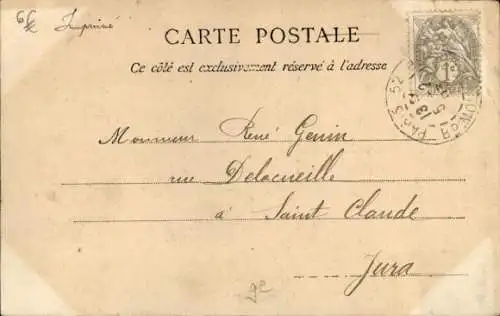 6f Imprimé
CARTE POSTALE
Ce côté est exclusivement réservé à l'adresse
PARIS 52
Monsieur René Genin
rue Delacueille
à Saint Claude
Jura